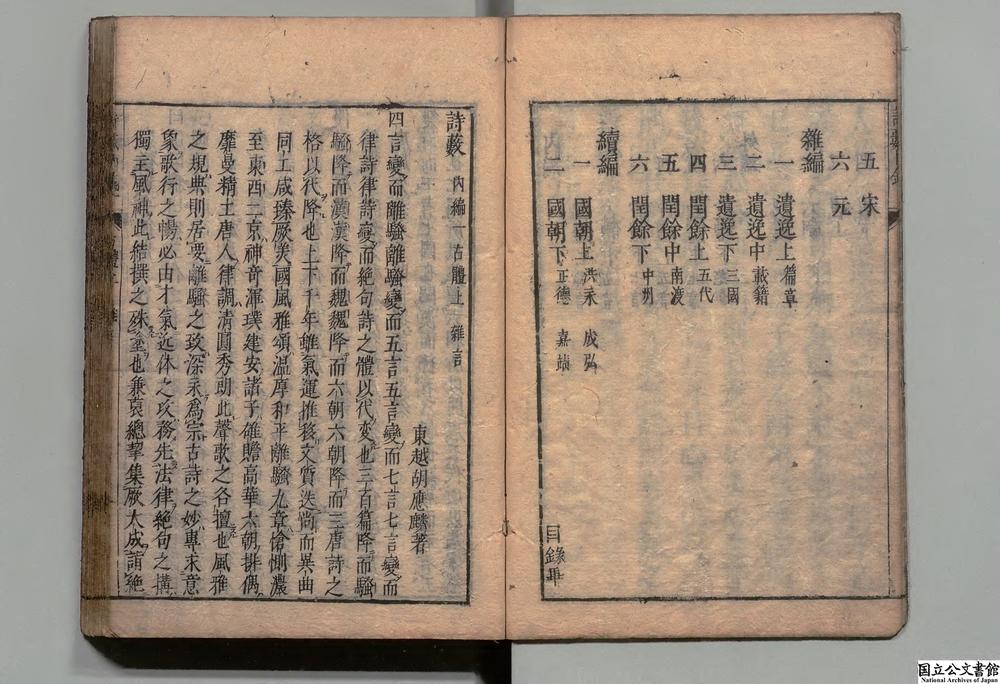 五 宋
六 元
雜編
一 遺逸上 篇章
二 遺逸中 載籍
三 遺逸下 三國
四 閏餘上 五代
五 閏餘中 南渡
六 閏餘下 中州
續編
一 國朝上 洪永 成弘
二 國朝下 正德 嘉靖
目錄畢
詩藪 內編一 古體上 雜言
東越胡應麟著
四言變而離騷離騷變而五言五言變而七言七言變而
律詩律詩變而絕句詩之體以代變也三百篇降而騷
騷降而漢漢降而魏魏降而六朝六朝降而三唐詩之
格以代降也上下千年雖氣運推移文質迭尚而異曲
同工咸臻厥美國風雅頌溫厚和平離騷九章愴惻濃
至東西二京神奇渾璞建安諸子雄贍高華六朝排偶
靡曼精工唐人律調清圓秀朗此聲歌之各擅也風雅
之規典則居要離騷之致深永為宗古詩之妙專求意
象歌行之暢必由才氣近体之攻務先法律絕句之搆
獨主風神此結撰之殊塗也兼裒總挈集厥大成詣絕
国立公文書館
National Archives of Japan